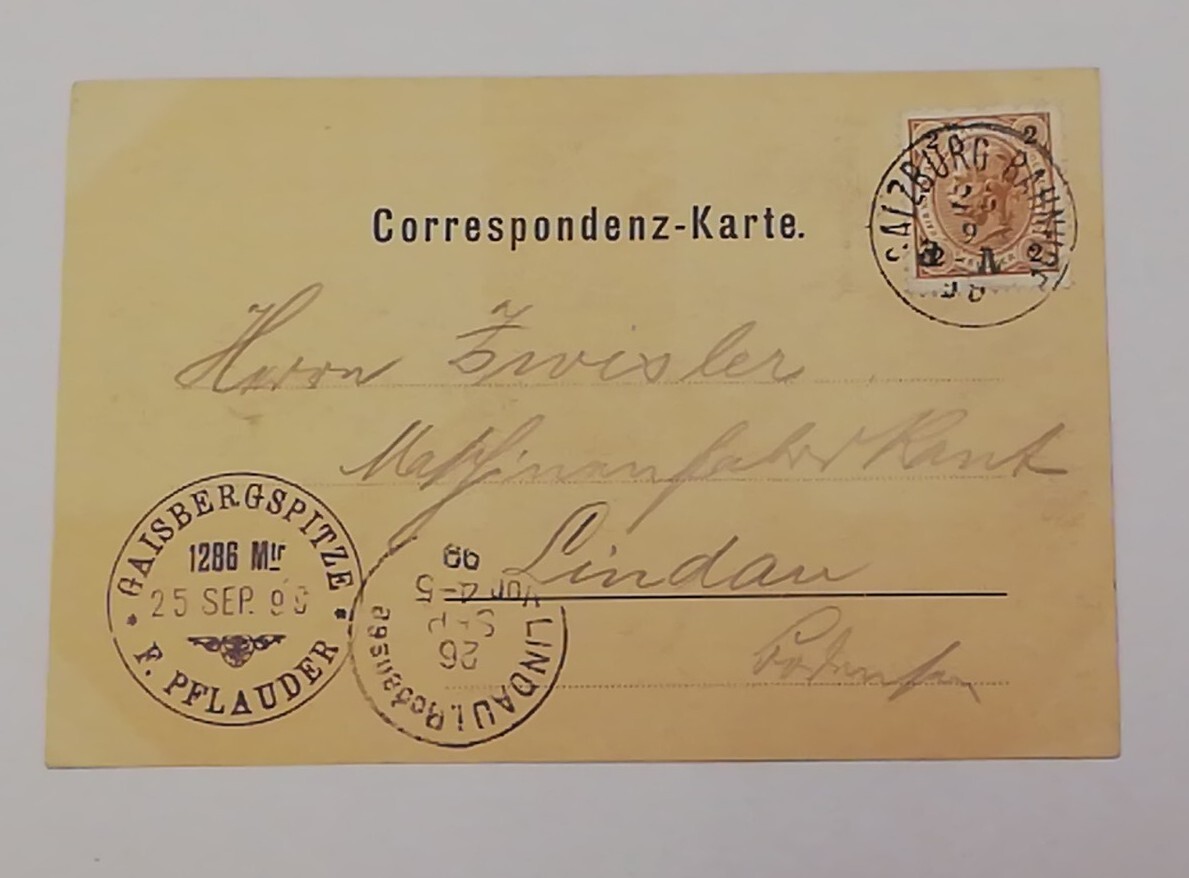 Correspondenz-Karte.
2 2
2 2
SALZBURG BAHNHOF
9
Herrn Zwisler
Maschinenfabrikant
Lindau
Bodensee
GAISBERGSPITZE
1286 Mtr
25 SEP. 98
F. PFLAUDER
LINDAU i. Bodensee
26
SEP
Vor 4-5
98